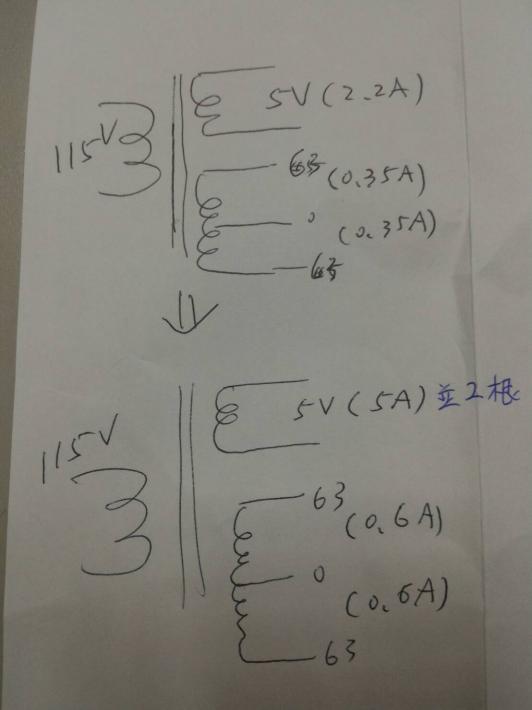 115V
5V(2.2A)
63
(0.35A)
0
(0.35A)
63
115V
5V(5A)並2根
63
(0.6A)
0
(0.6A)
63